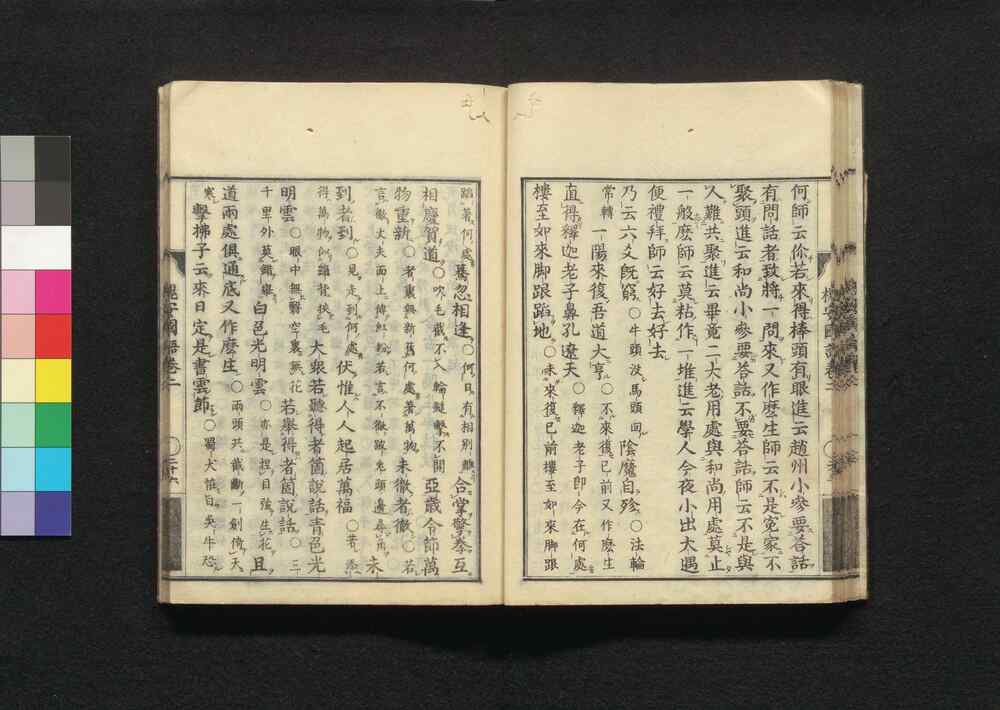 何師云你若來得棒頭有眼進云趙州小參要荅話
有問話者致將一問來又作麼生師云不是冤家不
聚頭進云和尚小參要荅話不要荅話師云不是與
人難共聚進云畢竟二大老用處與和尚用處莫止
一般麼師云莫粘作一堆進云學人今夜小出大遇
便禮拜師云好去好去
乃云六爻既窮○牛頭沒馬頭回陰魔自殄○法輪
常轉一陽來復吾道大亨○不來復已前又作麼生
直得釋迦老子鼻孔遼天○釋迦老子即今在何處
樓至如來脚跟蹈地○未來復已前樓至如來脚跟
蹈著何處驀忽相逢○何日有相別離合掌擎拳互
相慶賀道○吹毛截不入輪鎚擊不開亞歲令節萬
物重新○者裏無新舊何處著萬物未徹者徹○若
言徹丈夫面上傅紅粉若言不徹跛兔頭邊
未
到者到○見走到何處伏惟人人起居萬福○苦
得萬物似離背挾毛大衆若聽得者箇說話青邑光
明雲○眼中無翳空裏無花若舉得者箇說話○三
千里外莫錯舉白邑光明雲○亦是捏目強生花且
道兩處俱通底又作麼生○兩頭共截斷一劍倚天
寒擊拂子云來日定是書雲節○蜀犬惟日吳牛恐
槐安國語卷二